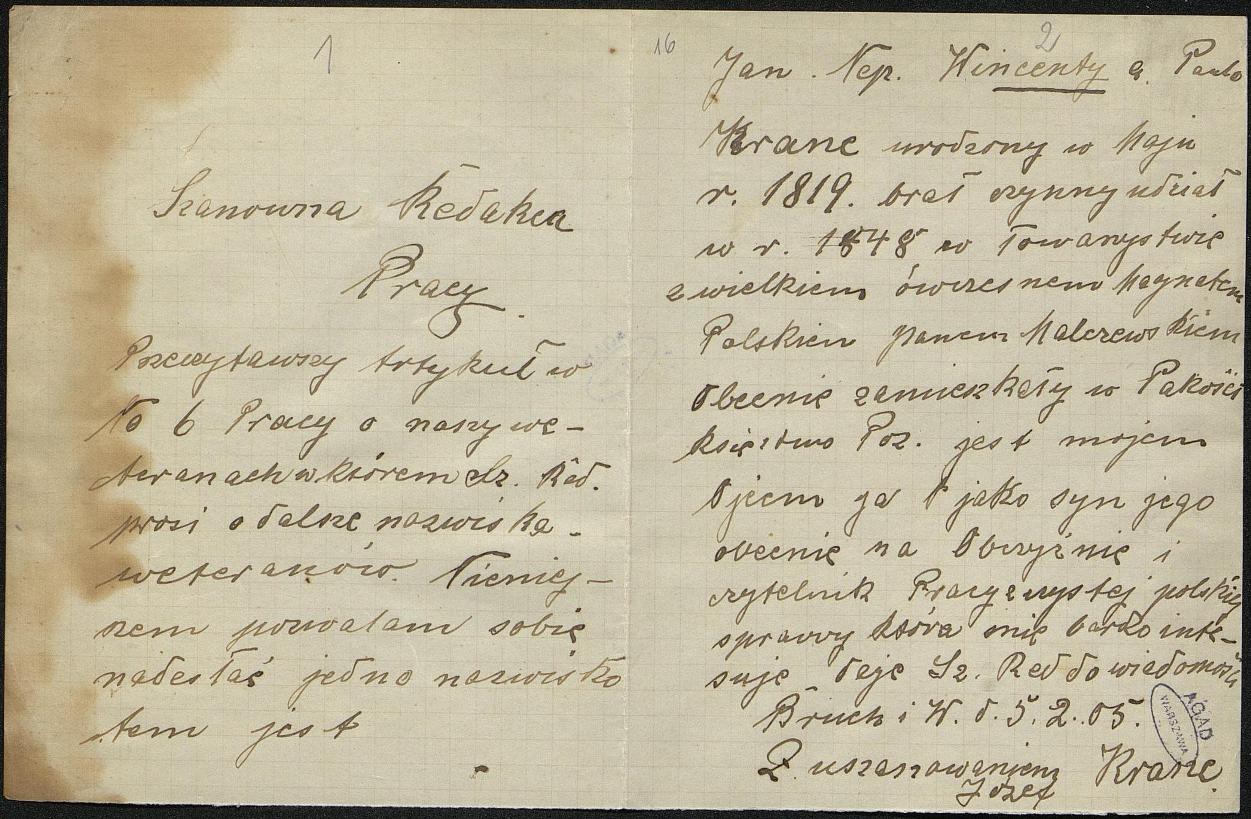 1
Szanowna Redakca
Pracy.
Przeczytawszy Artykuł w
No 6 Pracy o naszy we-
teranach w którem Sz. Red.
prosi o dalsze nazwiska
weteranów. Niniej-
szem pozwalam sobie
nadesłać jedno nazwisko
tem jest
16
2
Jan. Nep. Wincenty a. Paulo
Kranc urodzony w Maju
r. 1819. brał czynny udział
w r. 1848 w Towarzystwie
z wielkiem ówczesnem Magnatem
Polskiem panem Malczewskiem
Obecnie zamieszkały w Pakości
Księstwo Poz. jest mojem
Ojcem ja jako syn jego
obecnie na Obczyźnie i
czytelnik Pracy z czystej polskiej
sprawy która mię bardzo inte-
suje daje Sz. Red do wiadomości
Bruch i W. d. 5. 2. 05.
Z uszanowaniem Kranc.
Józef
AGAD
WARSZAWA